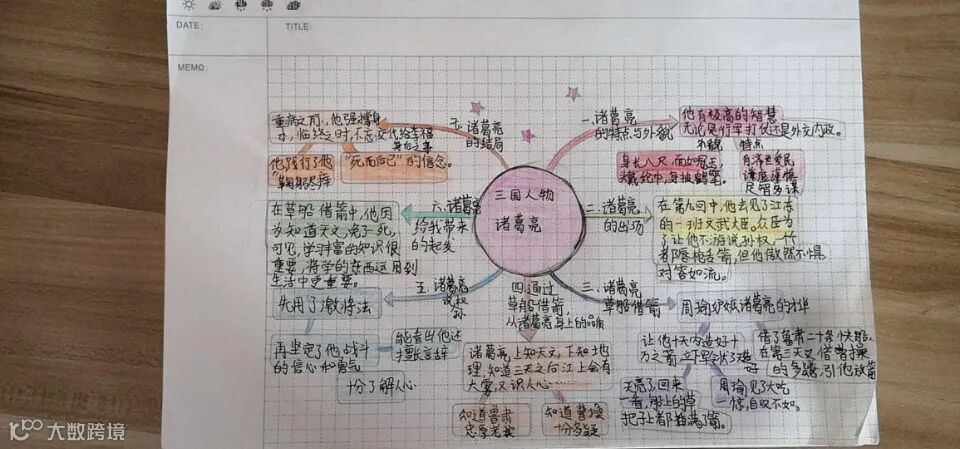 DATE:
TITLE:
MEMO:
三国人物
诸葛亮
一.诸葛亮
的特点与外貌
他有极高的智慧
无论是行军打仗还是外交内政。
外貌
特点
身长八尺,面如冠玉,
头戴纶巾,身披鹤氅。
有济世爱民
谦虚谨慎
足智多谋
二.诸葛亮
的出场
在第九回中,他去见了江东
的一班文武大臣。众臣为
了让他不游说孙权,个个
都唇枪舌箭,但他傲然不惧
对答如流。
三.诸葛亮
草船借箭
周瑜妒嫉诸葛亮的才华
让他十天内造好十
万之箭
借了鲁肃二十条快船,
在第三天又借曹操
的多疑,引他放箭
天亮了,回来
一看,船上的草
把子上都插满了箭。
周瑜见了大吃
一惊,自叹不如。
四.通过
草船借箭,
从诸葛亮身上的品质
诸葛亮上知天文,下知地
理,知道三天之后江上会有
大雾,又识人心……
知道鲁肃
忠厚老实
知道曹操
十分多疑
五.诸葛亮
说
孙权
先用了激将法
再坚定了他战斗
的信心和勇气
能看出他还
十分了解人心
六.诸葛亮
给我带来
的启发
在草船借箭中,他因
为知道天文,免了一死,
可见,学习丰富的知识很
重要,将学的东西运用到
生活中更重要。
诸葛亮
的结局
重病之前,他强撑身
临终之时,不忘交代给姜维
身后之事
他践行了他
"鞠躬尽瘁
"死而后已"的信念。
大数跨境